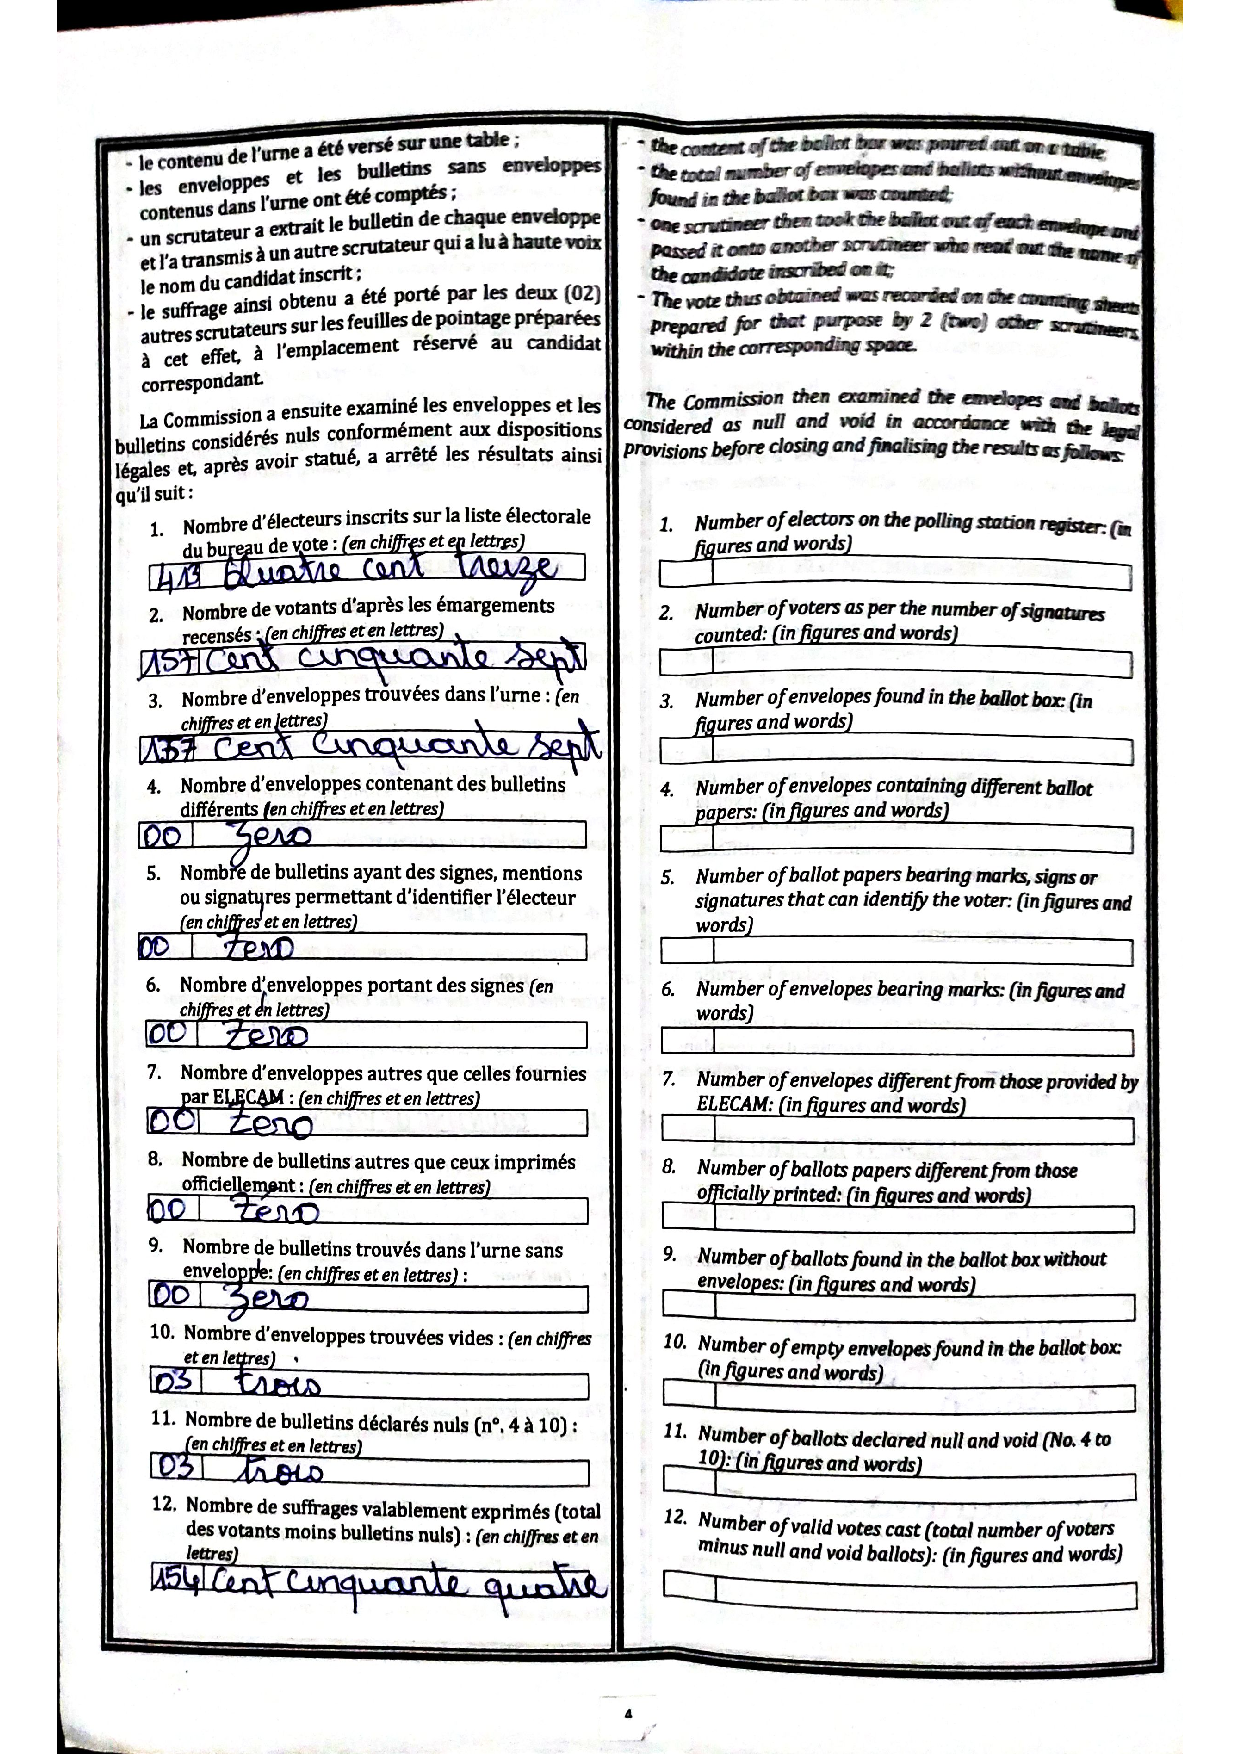 - le contenu de l'urne a été versé sur une table ;
- les enveloppes et les bulletins sans enveloppes
contenus dans l'urne ont été comptés ;
- un scrutateur a extrait le bulletin de chaque enveloppe
et l'a transmis à un autre scrutateur qui a lu à haute voix
le nom du candidat inscrit ;
- le suffrage ainsi obtenu a été porté par les deux (02)
autres scrutateurs sur les feuilles de pointage préparées
à cet effet, à l'emplacement réservé au candidat
correspondant.
La Commission a ensuite examiné les enveloppes et les
bulletins considérés nuls conformément aux dispositions
légales et, après avoir statué, a arrêté les résultats ainsi
qu'il suit :
1. Nombre d'électeurs inscrits sur la liste électorale
du bureau de vote : (en chiffres et en lettres)
413 Quatre cent treize
2. Nombre de votants d'après les émargements
recensés : (en chiffres et en lettres)
157 Cent cinquante sept
3. Nombre d'enveloppes trouvées dans l'urne : (en
chiffres et en lettres)
157 Cent Cinquante sept
4. Nombre d'enveloppes contenant des bulletins
différents (en chiffres et en lettres)
00 Zero
5. Nombre de bulletins ayant des signes, mentions
ou signatures permettant d'identifier l'électeur
(en chiffres et en lettres)
00 Zero
6. Nombre d'enveloppes portant des signes (en
chiffres et en lettres)
00 Zero
7. Nombre d'enveloppes autres que celles fournies
par ELECAM : (en chiffres et en lettres)
00 Zero
8. Nombre de bulletins autres que ceux imprimés
officiellement : (en chiffres et en lettres)
00 Zero
9. Nombre de bulletins trouvés dans l'urne sans
enveloppe: (en chiffres et en lettres) :
00 Zero
10. Nombre d'enveloppes trouvées vides : (en chiffres
et en lettres)
03 trois
11. Nombre de bulletins déclarés nuls (n°. 4 à 10) :
(en chiffres et en lettres)
03 trois
12. Nombre de suffrages valablement exprimés (total
des votants moins bulletins nuls) : (en chiffres et en
lettres)
154 Cent cinquante quatre
- the content of the ballot box was poured out on a table;
- the total number of envelopes and ballots without envelopes
found in the ballot box was counted;
- one scrutineer then took the ballot out of each envelope and
passed it onto another scrutineer who read out the name of
the candidate inscribed on it;
- The vote thus obtained was recorded on the counting sheets
prepared for that purpose by 2 (two) other scrutineers,
within the corresponding space.
The Commission then examined the envelopes and ballots
considered as null and void in accordance with the legal
provisions before closing and finalising the results as follows:
1. Number of electors on the polling station register: (in
figures and words)
2. Number of voters as per the number of signatures
counted: (in figures and words)
3. Number of envelopes found in the ballot box: (in
figures and words)
4. Number of envelopes containing different ballot
papers: (in figures and words)
5. Number of ballot papers bearing marks, signs or
signatures that can identify the voter: (in figures and
words)
6. Number of envelopes bearing marks: (in figures and
words)
7. Number of envelopes different from those provided by
ELECAM: (in figures and words)
8. Number of ballots papers different from those
officially printed: (in figures and words)
9. Number of ballots found in the ballot box without
envelopes: (in figures and words)
10. Number of empty envelopes found in the ballot box:
(in figures and words)
11. Number of ballots declared null and void (No. 4 to
10): (in figures and words)
12. Number of valid votes cast (total number of voters
minus null and void ballots): (in figures and words)
4